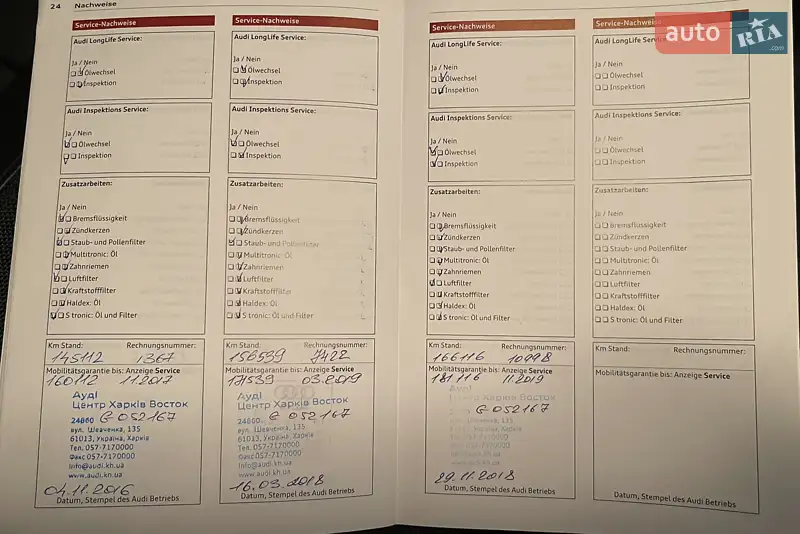 24 Nachweise
Service-Nachweise
Audi LongLife Service:
Ja / Nein
Ölwechsel
Inspektion
Audi Inspektions Service:
Ja / Nein
Ölwechsel
Inspektion
Zusatzarbeiten:
Ja / Nein
Bremsflüssigkeit
Zündkerzen
Staub- und Pollenfilter
Multitronic: Öl
Zahnriemen
Luftfilter
Kraftstofffilter
Haldex: Öl
S tronic: Öl und Filter
Km Stand: Rechnungsnummer:
145112 1367
Mobilitätsgarantie bis: Anzeige Service
160112 11.2017
Ауді
Центр Харків Восток
24860 G 052167
вул. Шевченка, 135
61013, Україна, Харків
Тел. 057-7170000
Факс 057-7170000
info@audi.kh.ua
www.audi.kh.ua
04.11.2016
Datum, Stempel des Audi Betriebs
Service-Nachweise
Audi LongLife Service:
Ja / Nein
Ölwechsel
Inspektion
Audi Inspektions Service:
Ja / Nein
Ölwechsel
Inspektion
Zusatzarbeiten:
Ja / Nein
Bremsflüssigkeit
Zündkerzen
Staub- und Pollenfilter
Multitronic: Öl
Zahnriemen
Luftfilter
Kraftstofffilter
Haldex: Öl
S tronic: Öl und Filter
Km Stand: Rechnungsnummer:
156539 7422
Mobilitätsgarantie bis: Anzeige Service
171539 03.2019
Ауді
Центр Харків Восток
24860 G 052167
вул. Шевченка, 135
61013, Україна, Харків
Тел. 057-7170000
Факс 057-7170000
info@audi.kh.ua
www.audi.kh.ua
16.03.2018
Datum, Stempel des Audi Betriebs
Service-Nachweise
Audi LongLife Service:
Ja / Nein
Ölwechsel
Inspektion
Audi Inspektions Service:
Ja / Nein
Ölwechsel
Inspektion
Zusatzarbeiten:
Ja / Nein
Bremsflüssigkeit
Zündkerzen
Staub- und Pollenfilter
Multitronic: Öl
Zahnriemen
Luftfilter
Kraftstofffilter
Haldex: Öl
S tronic: Öl und Filter
Km Stand: Rechnungsnummer:
166116 10998
Mobilitätsgarantie bis: Anzeige Service
181116 11.2019
Ауді
Центр Харків Восток
G 052167
Шевченка, 135
Україна, Харків
057-7170000
29.11.2018
Datum, Stempel des Audi Betriebs
Service-Nachweise
Audi LongLife Service:
Ja / Nein
Ölwechsel
Inspektion
Audi Inspektions Service:
Ja / Nein
Ölwechsel
Inspektion
Zusatzarbeiten:
Ja / Nein
Bremsflüssigkeit
Zündkerzen
Staub- und Pollenfilter
Multitronic: Öl
Zahnriemen
Luftfilter
Kraftstofffilter
Haldex: Öl
S tronic: Öl und Filter
Km Stand: Rechnungsnummer:
Mobilitätsgarantie bis: Anzeige Service
Datum, Stempel des Audi Betriebs
auto RIA .com